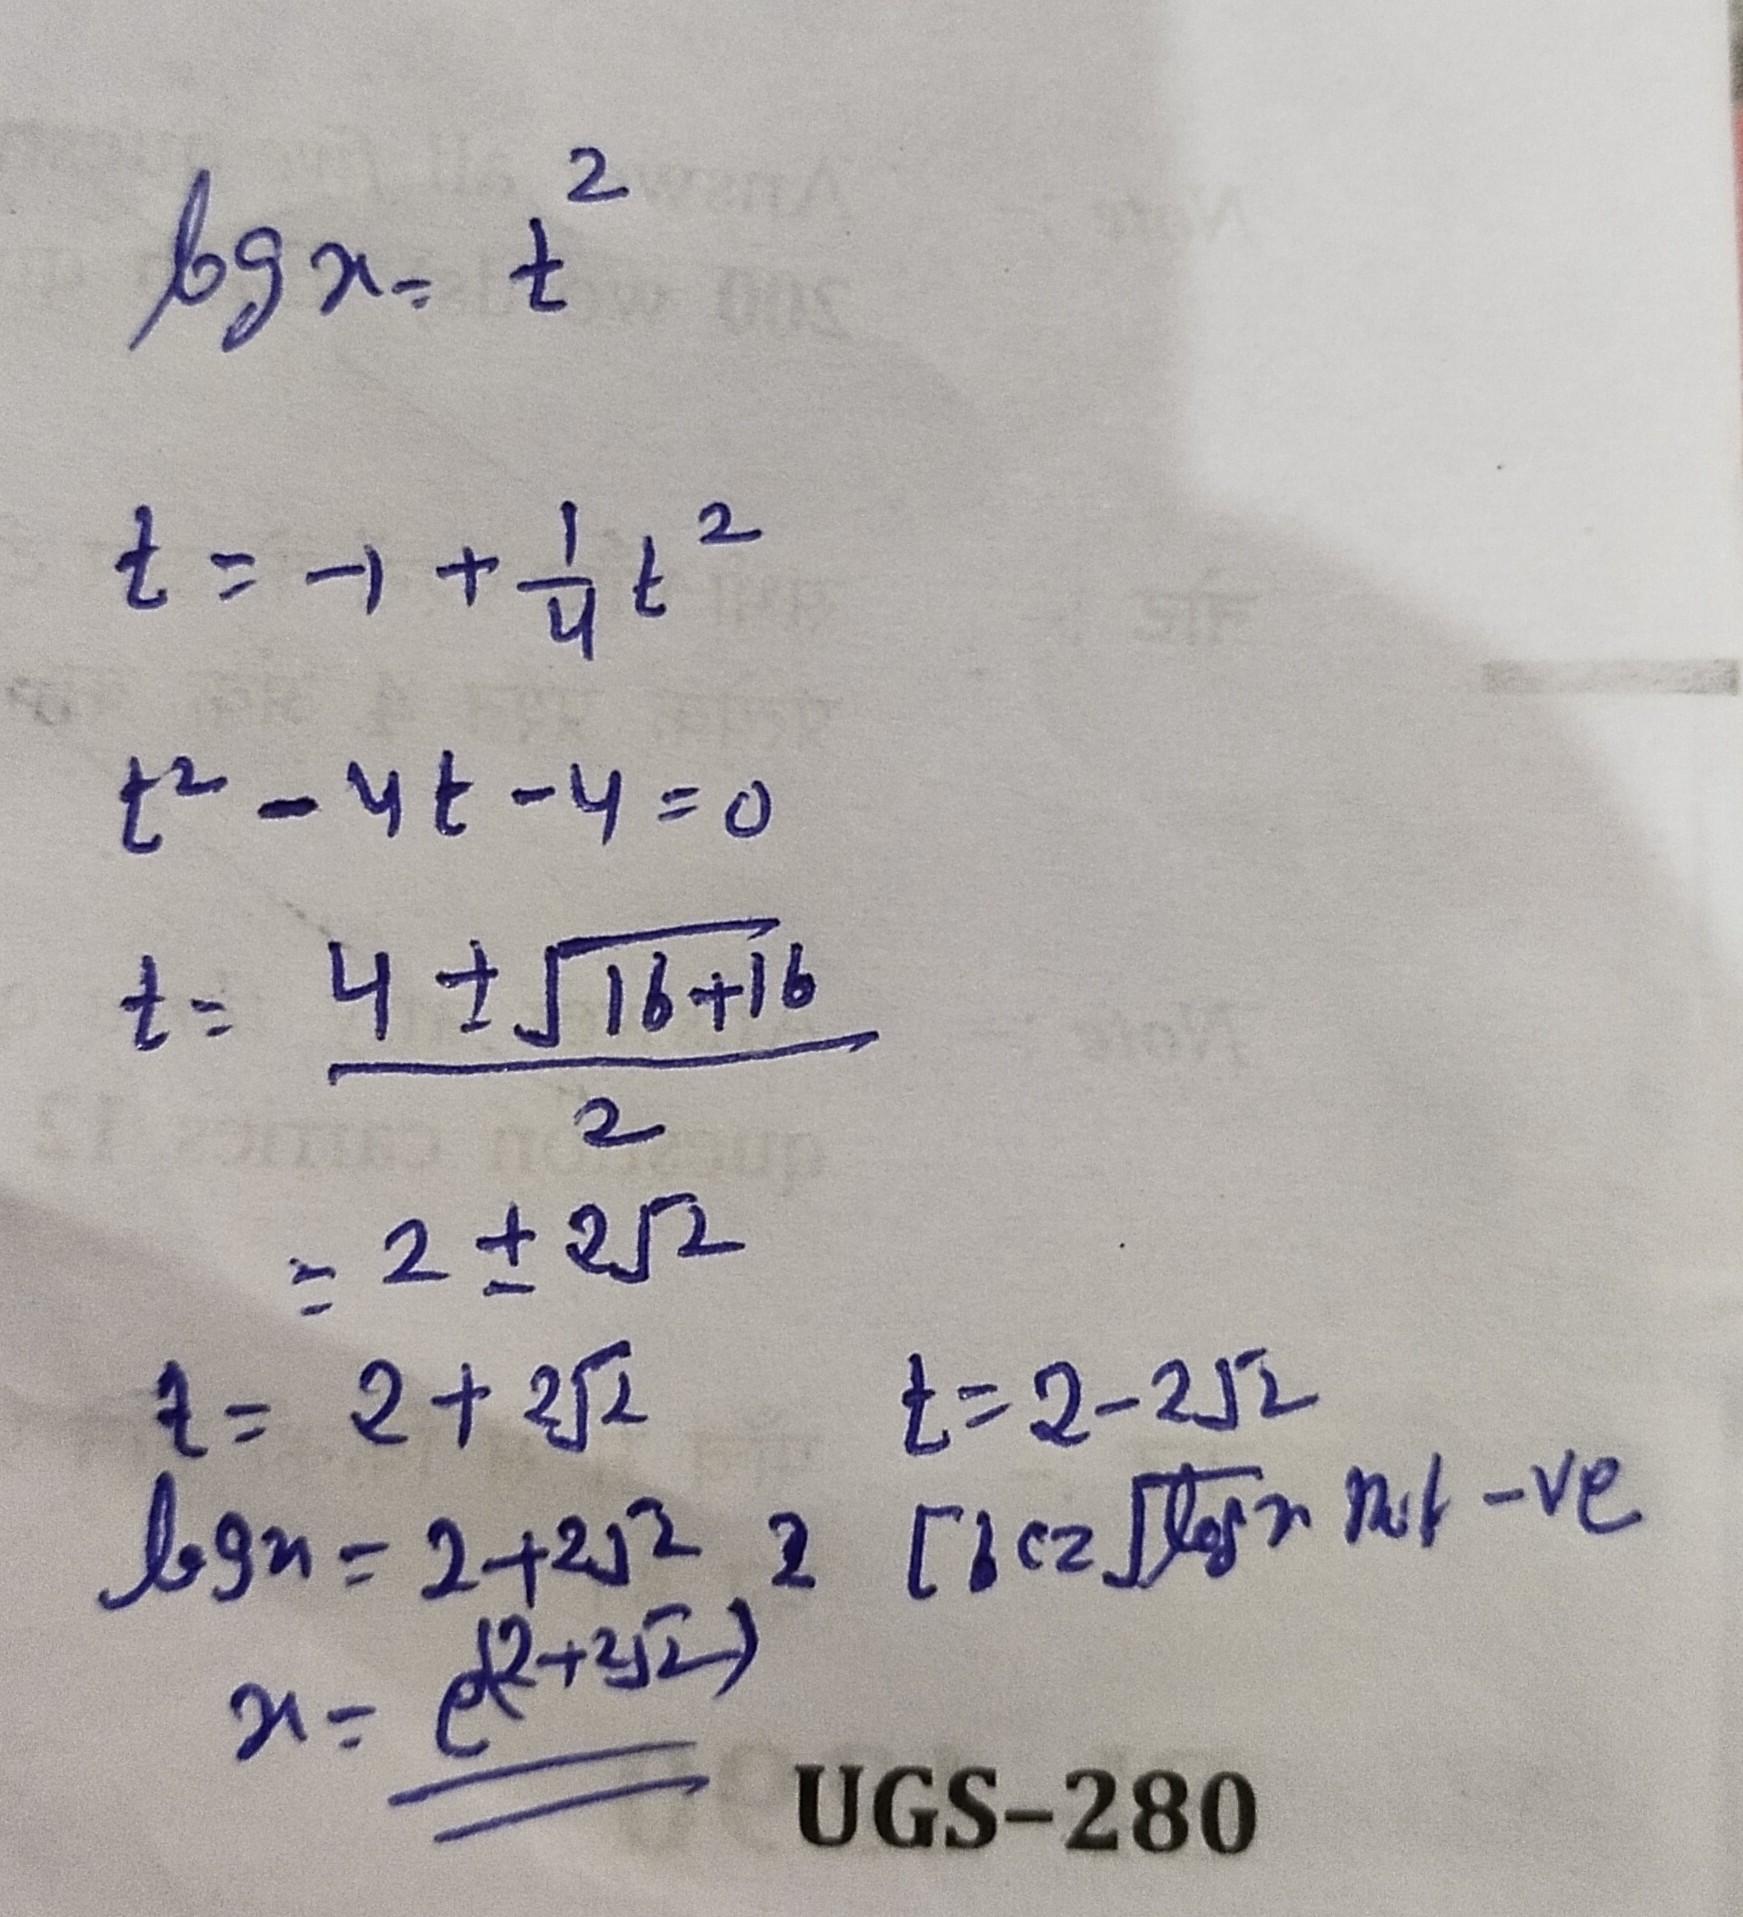 log x = t²
t = -1 + 1/4 t²
t² - 4t - 4 = 0
t = (4 ± √(16+16))/2
= 2 ± 2√2
t = 2 + 2√2    t = 2 - 2√2
log x = 2+2√2    [bcz √log x not -ve
x = e^(2+2√2)
UGS-280